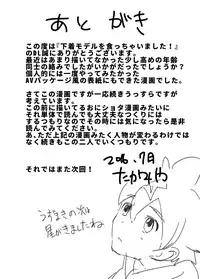 あとがき
この度は『下着モデルを食っちゃいました！』
のDL誠にありがとうございます。
最近はあまり描いてなかった少し高めの年齢
同士の絡みでしたがいかがだったでしょうか？
個人的には一度やってみたかった
AVパッケージ風の表紙にもできた漫画でした。
さてこの漫画ですが一応続きうっすらですが
考えています。
この前に描いてるおにショタ漫画みたいに
それ単体で読んでも大丈夫なつくりには
するつもりなのでその時には気になったら是非
読んでみてください。
あ、ただ上記の漫画みたく人物が変わるわけでは
なく続きもこの二人でいくつもりです。
それではまた次回！
2016.7月
うすまきの次は
尾がきましたね